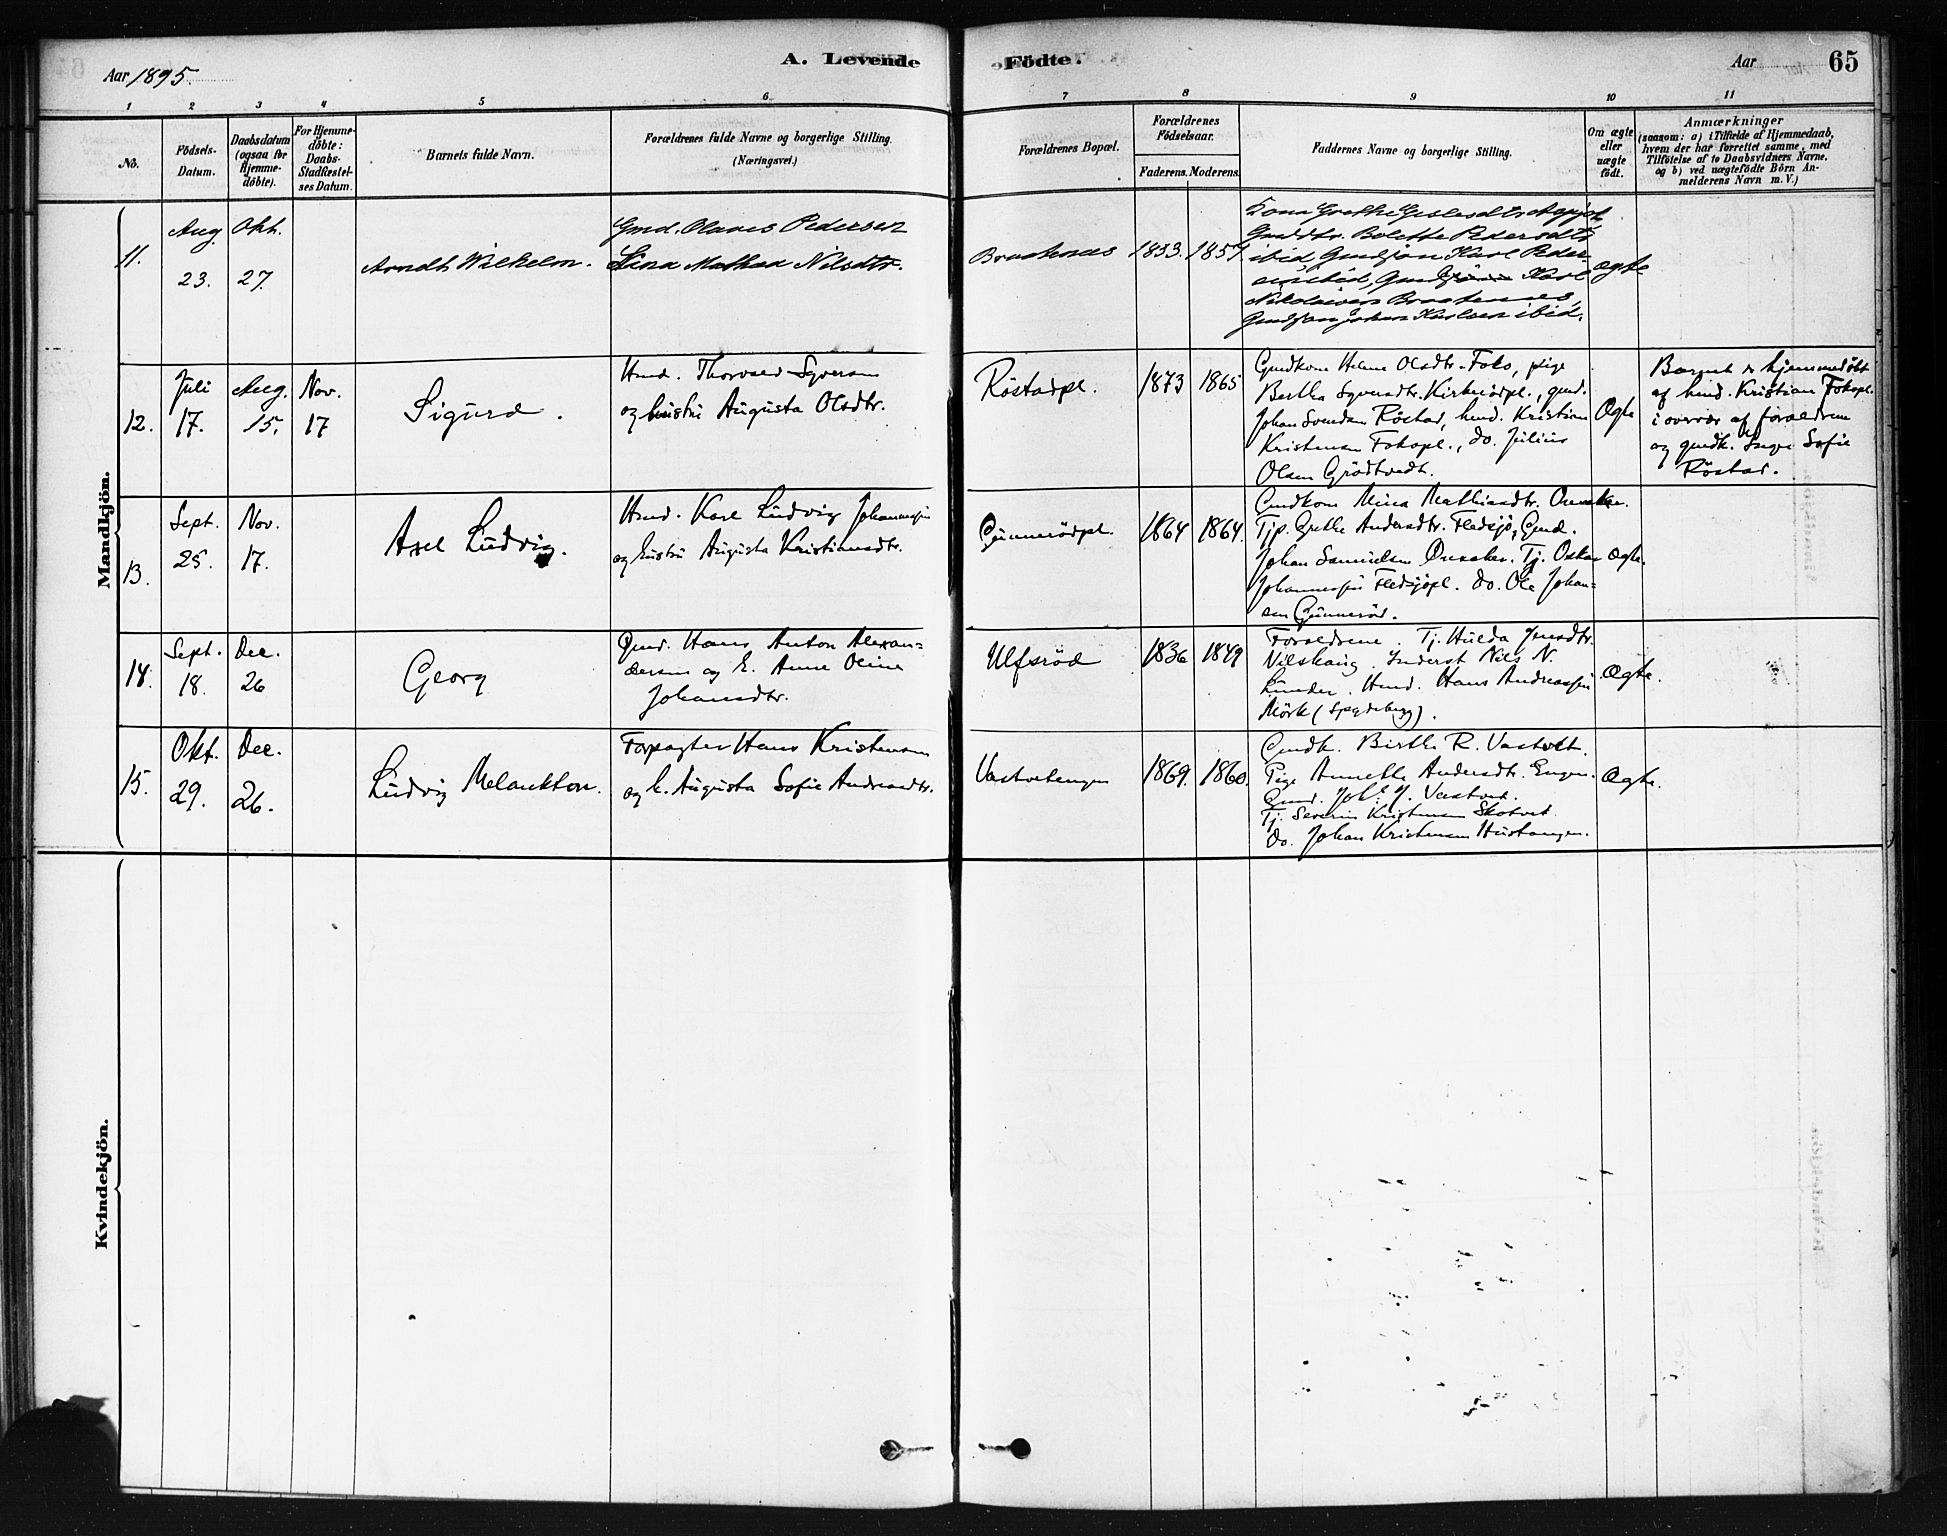 Aar 1895.
A. Levende Födte.
Aar
65
1 2 3 4 5 6 7 8 9 10 11
No.
Födsels-
Datum.
Daabsdatum
(ogsaa for
Hjemme-
döbte).
For Hjemme-
döbte:
Daabs-
Stadfæstel-
ses Datum.
Barnets fulde Navn.
Forældrenes fulde Navne og borgerlige Stilling.
(Næringsvei.)
Forældrenes Bopæl.
Forældrenes
Födselsaar.
Faderens. Moderens.
Faddernes Navne og borgerlige Stilling.
Om ægte
eller
uægte
født.
Anmærkninger
(saasom: a) i Tilfælde af Hjemmedaab,
hvem der har forrettet samme, med
Tilføielse af to Daabsvidners Navne.
og b) ved uægtefödte Börn An-
melderens Navn m. V.)
Mandkjön.
11.
Aug.
23.
Okt.
27.
Arndt Wilhelm.
Gmd. Olaves Pedersen
Lina Mathea Nilsdtr.
Braatenæs
1853. 1857
Kona Grethe
Gmddtr. Bolette Pedersdtr
ibid, Gmdsøn Karl Peder-
sen ibid, Karl
Nikolaisen Braatenes,
Gmdsøn Johan Karlsen ibid.
ægte
12.
Juli
17.
Aug.
15.
Nov.
17
Sigurd.
Hmd. Thorvald Syversen
og hustru Augusta Olsdtr.
Röstadpl.
1873 1865
Gmdkone Helene Olsdtr. Foko, pige
Bertha Syversdtr. Kirkerödpl., gmd.
Johan Svendsen Röstad, hmd. Kristian
Kristensen Fokopl., do. Julius
Olsen Grödtvedt.
Ægte
Barnet er hjemmedöbt
af hmd. Kristian Fokopl.
i overvær af forældrene
og gmdk. Inger Sofie
Röstad.
13.
Sept.
25.
Nov.
17.
Axel Ludvig.
Hmd. Karl Ludvig Johannessen
og hustru Augusta Kristiansdtr.
Gunnerödpl.
1864 1864.
Gmdkone Mina Mathiasdtr.
Tjp. Grethe Andersdtr. Fledsjö, Gmd.
Johan Samuelsen Tj. Oskar
Johannessen Fledsjöpl. do. Ole Johan-
sen Gunneröd.
Ægte.
14.
Sept.
18.
Dec.
26
Georg
Gmd. Hans Anton Alexan-
dersen og h. Anne Oline
Johansdtr.
Ulfsröd
1836 1849
Forældrene. Tj. Hulda Jensdtr.
Inderst Nils N.
Lunder. Hmd. Hans Andreassen
Mörk (Spydeberg).
Ægte.
15.
Okt.
29.
Dec.
26.
Ludvig Melankton.
Forpagter Hans Kristensen
og h. Augusta Sofie Andreasdtr.
Vastvetengen
1869. 1860.
Gmdk. Birthe R. Vastvet.
Pige Annethe Andersdtr. Engen.
Gmd. Joh. J. Vastvet.
Tj. Severin Kristensen Skotvet.
do. Johan Kristensen
Ægte.
Kvindekjön.